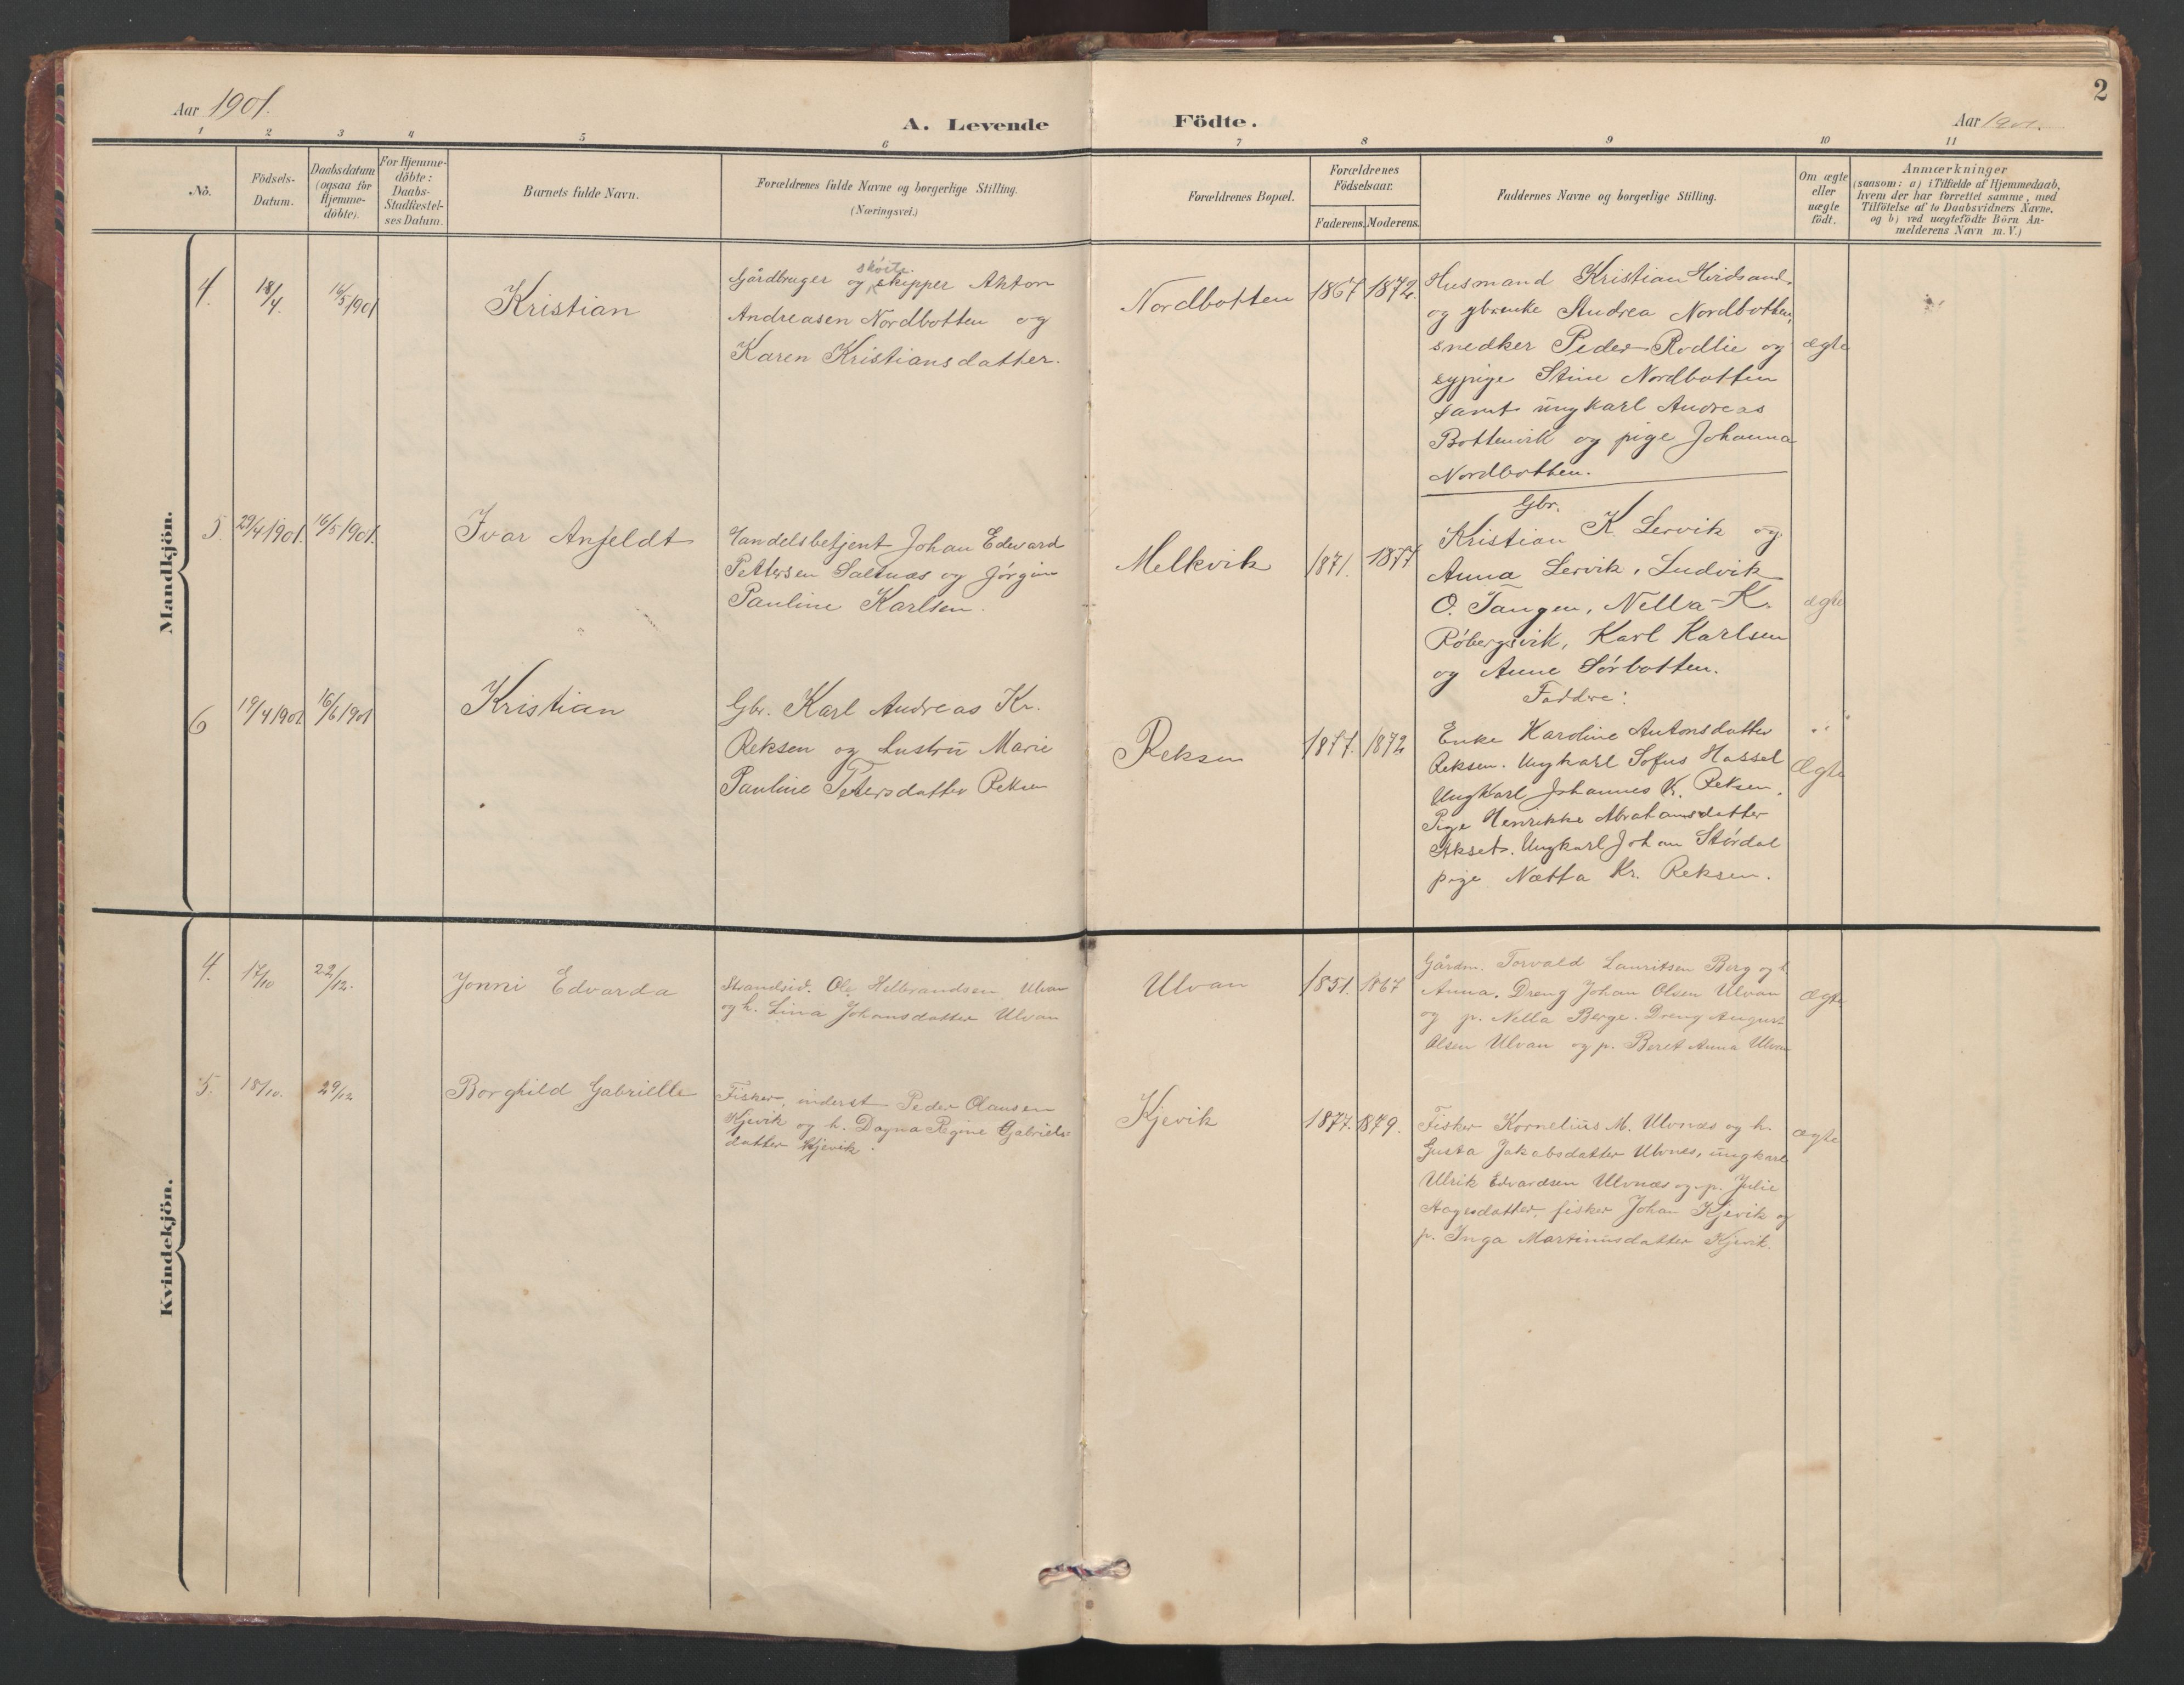 2
Aar 1901.
A. Levende Födte.
Aar 1901.
1 2 3 4 5 6 7 8 9 10 11
No.
Födsels-
Datum.
Daabsdatum
(ogsaa for
Hjemme-
döbte).
For Hjemme-
döbte:
Daabs-
Stadfæstel-
ses Datum.
Barnets fulde Navn.
Forældrenes fulde Navne og borgerlige Stilling.
(Næringsvei.)
Forældrenes Bopæl.
Forældrenes
Födselsaar.
Faderens. Moderens.
Faddernes Navne og borgerlige Stilling.
Om ægte
eller
uægte
födt.
Anmærkninger
(saasom: a) i Tilfælde af Hjemmedaab,
hvem der har forrettet samme, med
Tilföielse af to Daabsvidners Navne,
og b) ved uægtefödte Börn An-
melderens Navn m. V.)
Mandkjön.
4.
18/4.
16/5 1901
Kristian
skøite
Gårdbruger og skipper Anton
Andreasen Nordbotten og
Karen Kristiansdatter.
Nordbotten
1867 1872.
Husmand Kristian Hvidsand
og gbrenke Andrea Nordbotten,
snedker Peder Rodlie og
sypige Stine Nordbotten
samt ungkarl Andreas
Bottenvik og pige Johanna
Nordbotten.
ægte
5.
29/4 1901.
16/5 1901.
Ivar Anfeldt
Handelsbetjent Johan Edvard
Pettersen Saltnæs og Jørgine
Pauline Karlsen.
Melkvik
1871. 1877
Gbr.
Kristian K. Lervik og
Anna Lervik, Ludvik
O. Tangen, Nella K.
Røbergsvik, Karl Karlsen
og Anne Sørbotten.
ægte
6
19/4 1901
16/6 1901
Kristian
Gbr. Karl Andreas Kr.
Reksen og hustru Marie
Pauline Petersdatter Reksen
Reksen
1877. 1872
Faddre:
Enke Karoline Antonsdatter
Reksen. Ungkarl Sofus Hassel
Ungkarl Johannes K. Reksen.
Pige Henrikke Abrahamsdatter
Akset. Ungkarl Johan Størdal
pige Nætta Kr. Reksen.
Ægte
Kvindekjön.
4.
17/10
22/12.
Jonni Edvarda
Strandsid. Ole Helbrandsen Ulvan
og h. Lina Johansdatter Ulvan
Ulvan
1851. 1867
Gårdm. Torvald Lauritsen Berg og h.
Anna. Dreng Johan Olsen Ulvan
og p. Nella Berge. Dreng August
Olsen Ulvan og p. Beret Anna Ulvan
Ægte
5.
18/10.
29/12
Borghild Gabrielle
Fisker, inderst Peder Olausen
Kjevik og h. Dagna Regine Gabriels-
datter Kjevik.
Kjevik
1877. 1879.
Fisker Kornelius M. Ulvnæs og h.
Gusta Jakobsdatter Ulvnes, ungkarl
Ulrik Edvardsen Ulvnæs og p. Julie
Aagesdatter, fisker Johan Kjevik og
p. Inga Martinusdatter Kjevik.
ægte